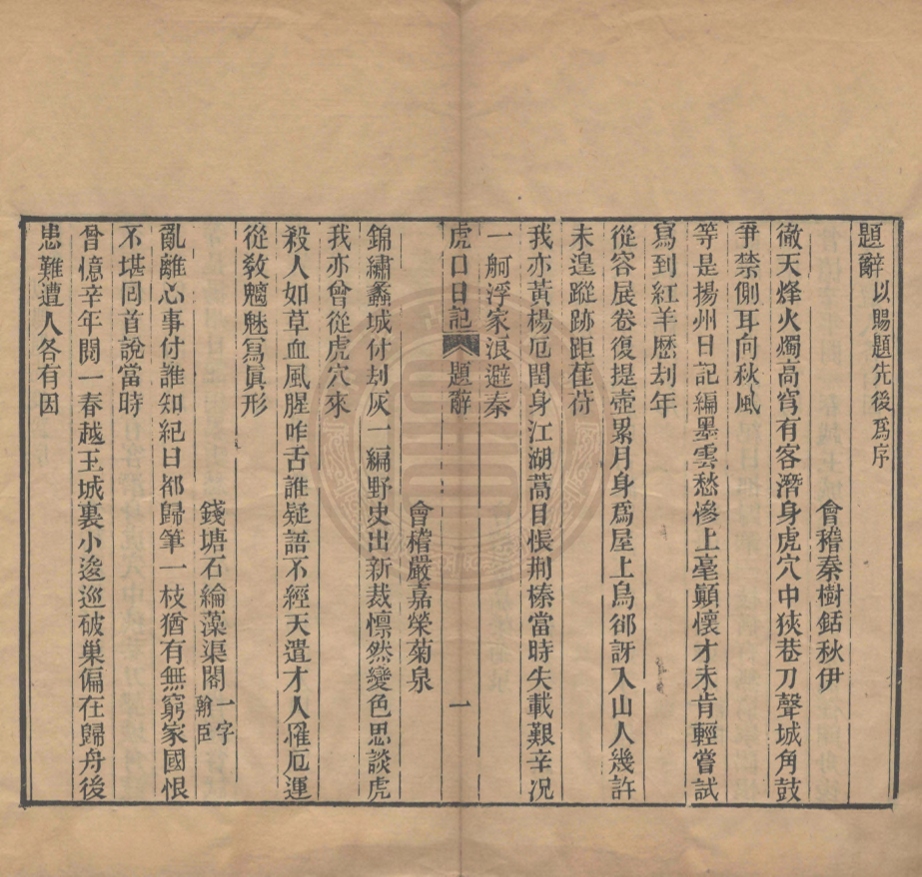 題辭以賜題先後爲序
會稽秦樹銛秋伊
徹天烽火燭高穹有客潛身虎穴中狹巷刀聲城角鼓
爭禁側耳向秋風
等是揚州日記編墨雲愁慘上毫顚懷才未肯輕嘗試
寫到紅羊歷刦年
從容展卷復提壺累月身爲屋上烏郤訝入山人幾許
未遑蹤跡距萑苻
我亦黃楊厄閏身江湖蒿目悵荆榛當時失載艱辛况
一舸浮家浪避秦
虎口日記 題辭 一
會稽嚴嘉榮菊泉
錦繡蠡城付刦灰一編野史出新裁懍然變色思談虎
我亦曾從虎穴來
殺人如草血風腥咋舌誰疑語不經天遣才人罹厄運
從敎魑魅寫眞形
錢塘石綸藻渠閣一字翰臣
亂離心事付誰知紀日都歸筆一枝猶有無窮家國恨
不堪回首說當時
曾憶辛年閱一春越王城裏小逡巡破巢偏在歸舟後
患難遭人各有因